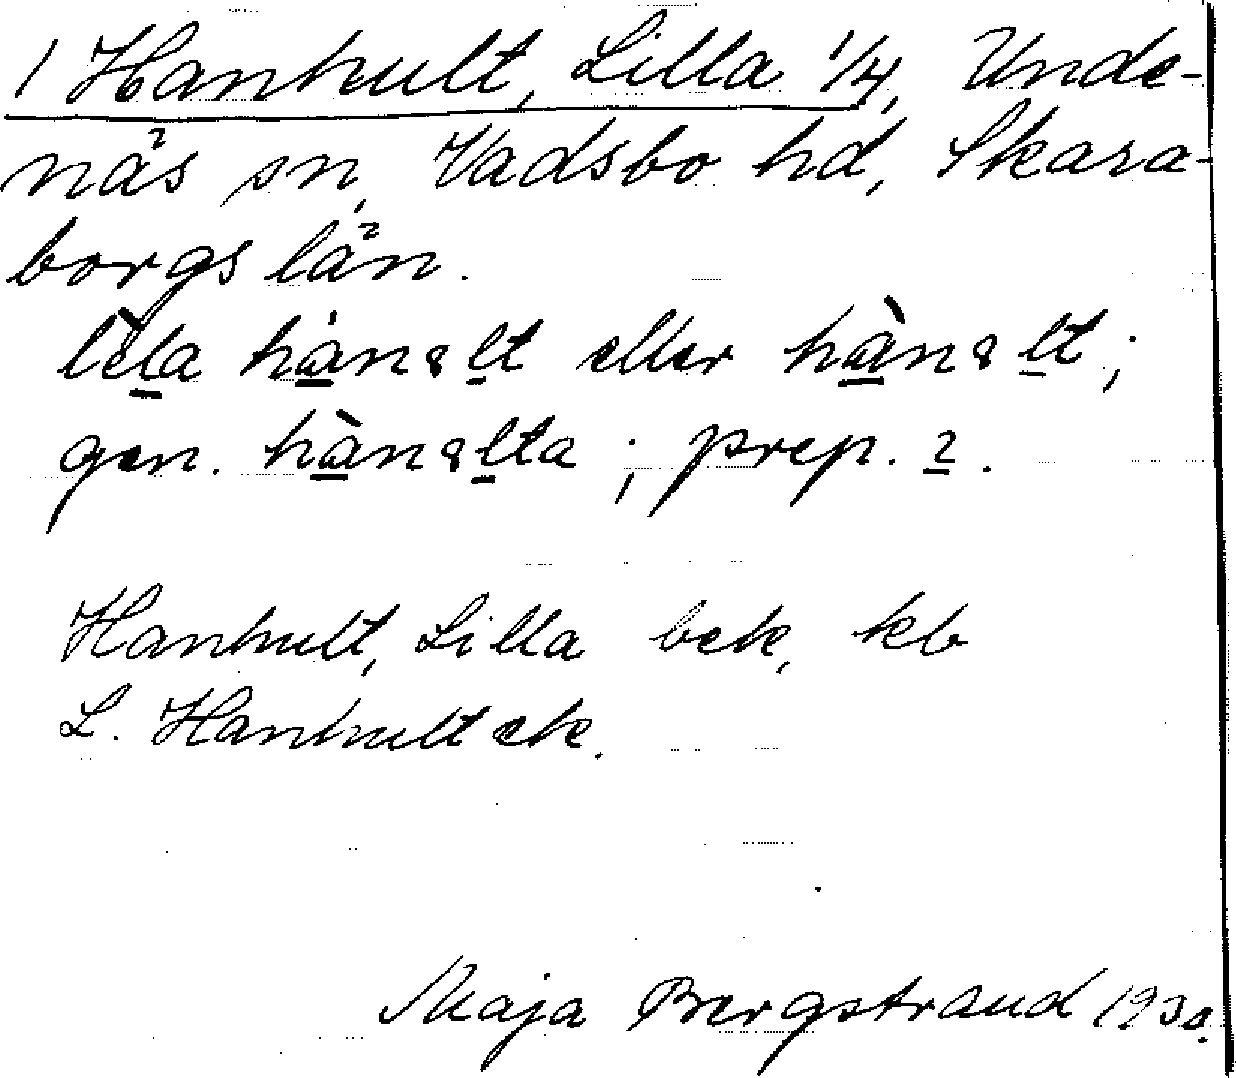 1 Hanhult, Lilla 1/4, Unde-
näs sn, Vadsbo hd, Skara-
borgs län.
eller
gen. ; prep. ı.
Hanhult, Lilla bek, kb
L. Hanhult ek.
Maja Bergstrand 1930.